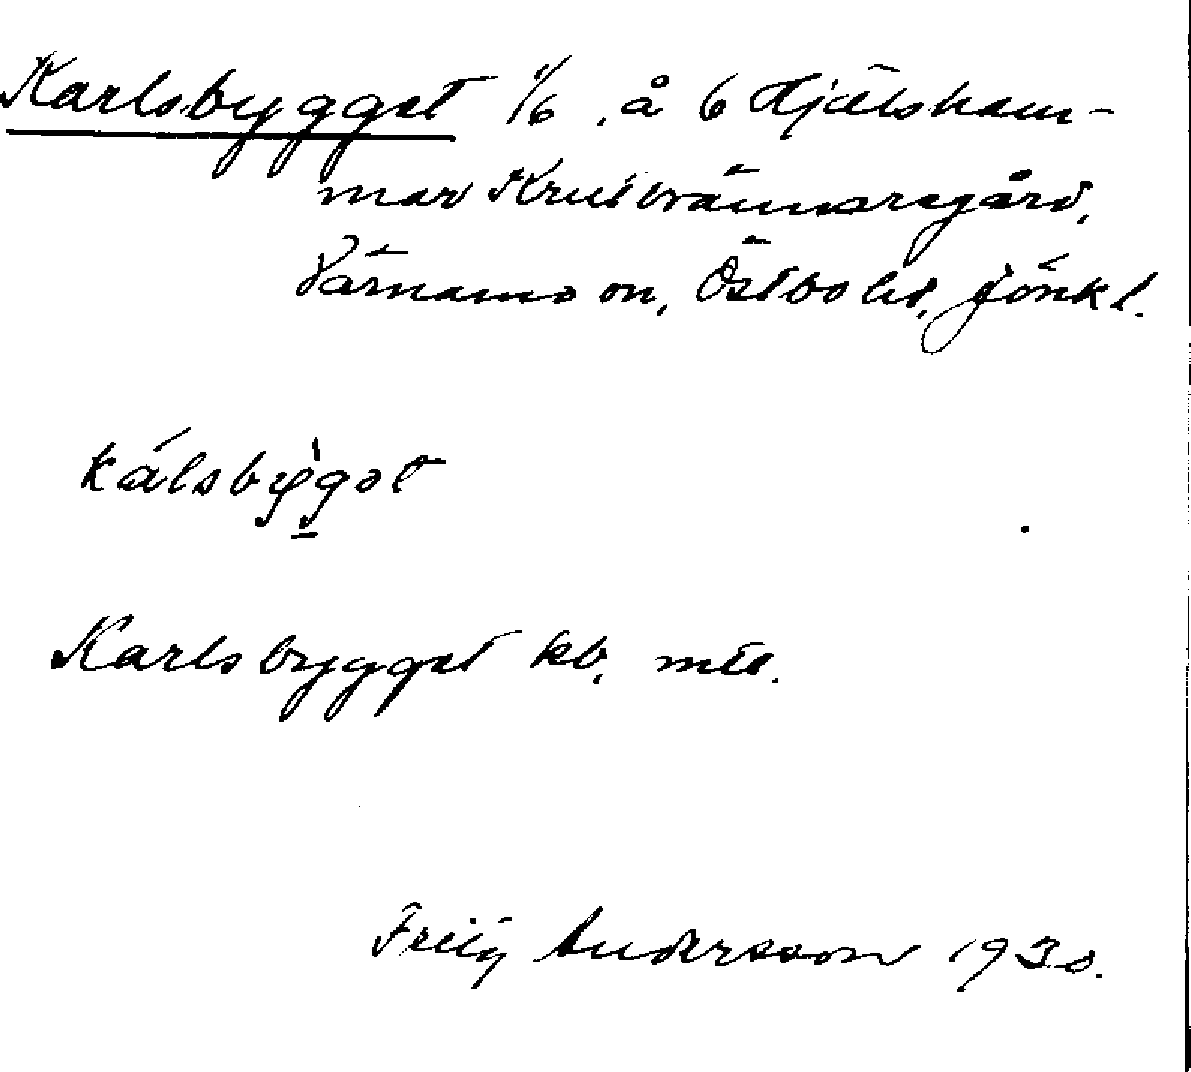 Karlsbygget 1/6, å 6 Hjälsham-
mar Krutbrännaregård,
Värnamo sn, Östbo hd, Jönk l.
kálsbỳgət
Karlsbygget kb, mtl.
Fritz Andersson 1930.